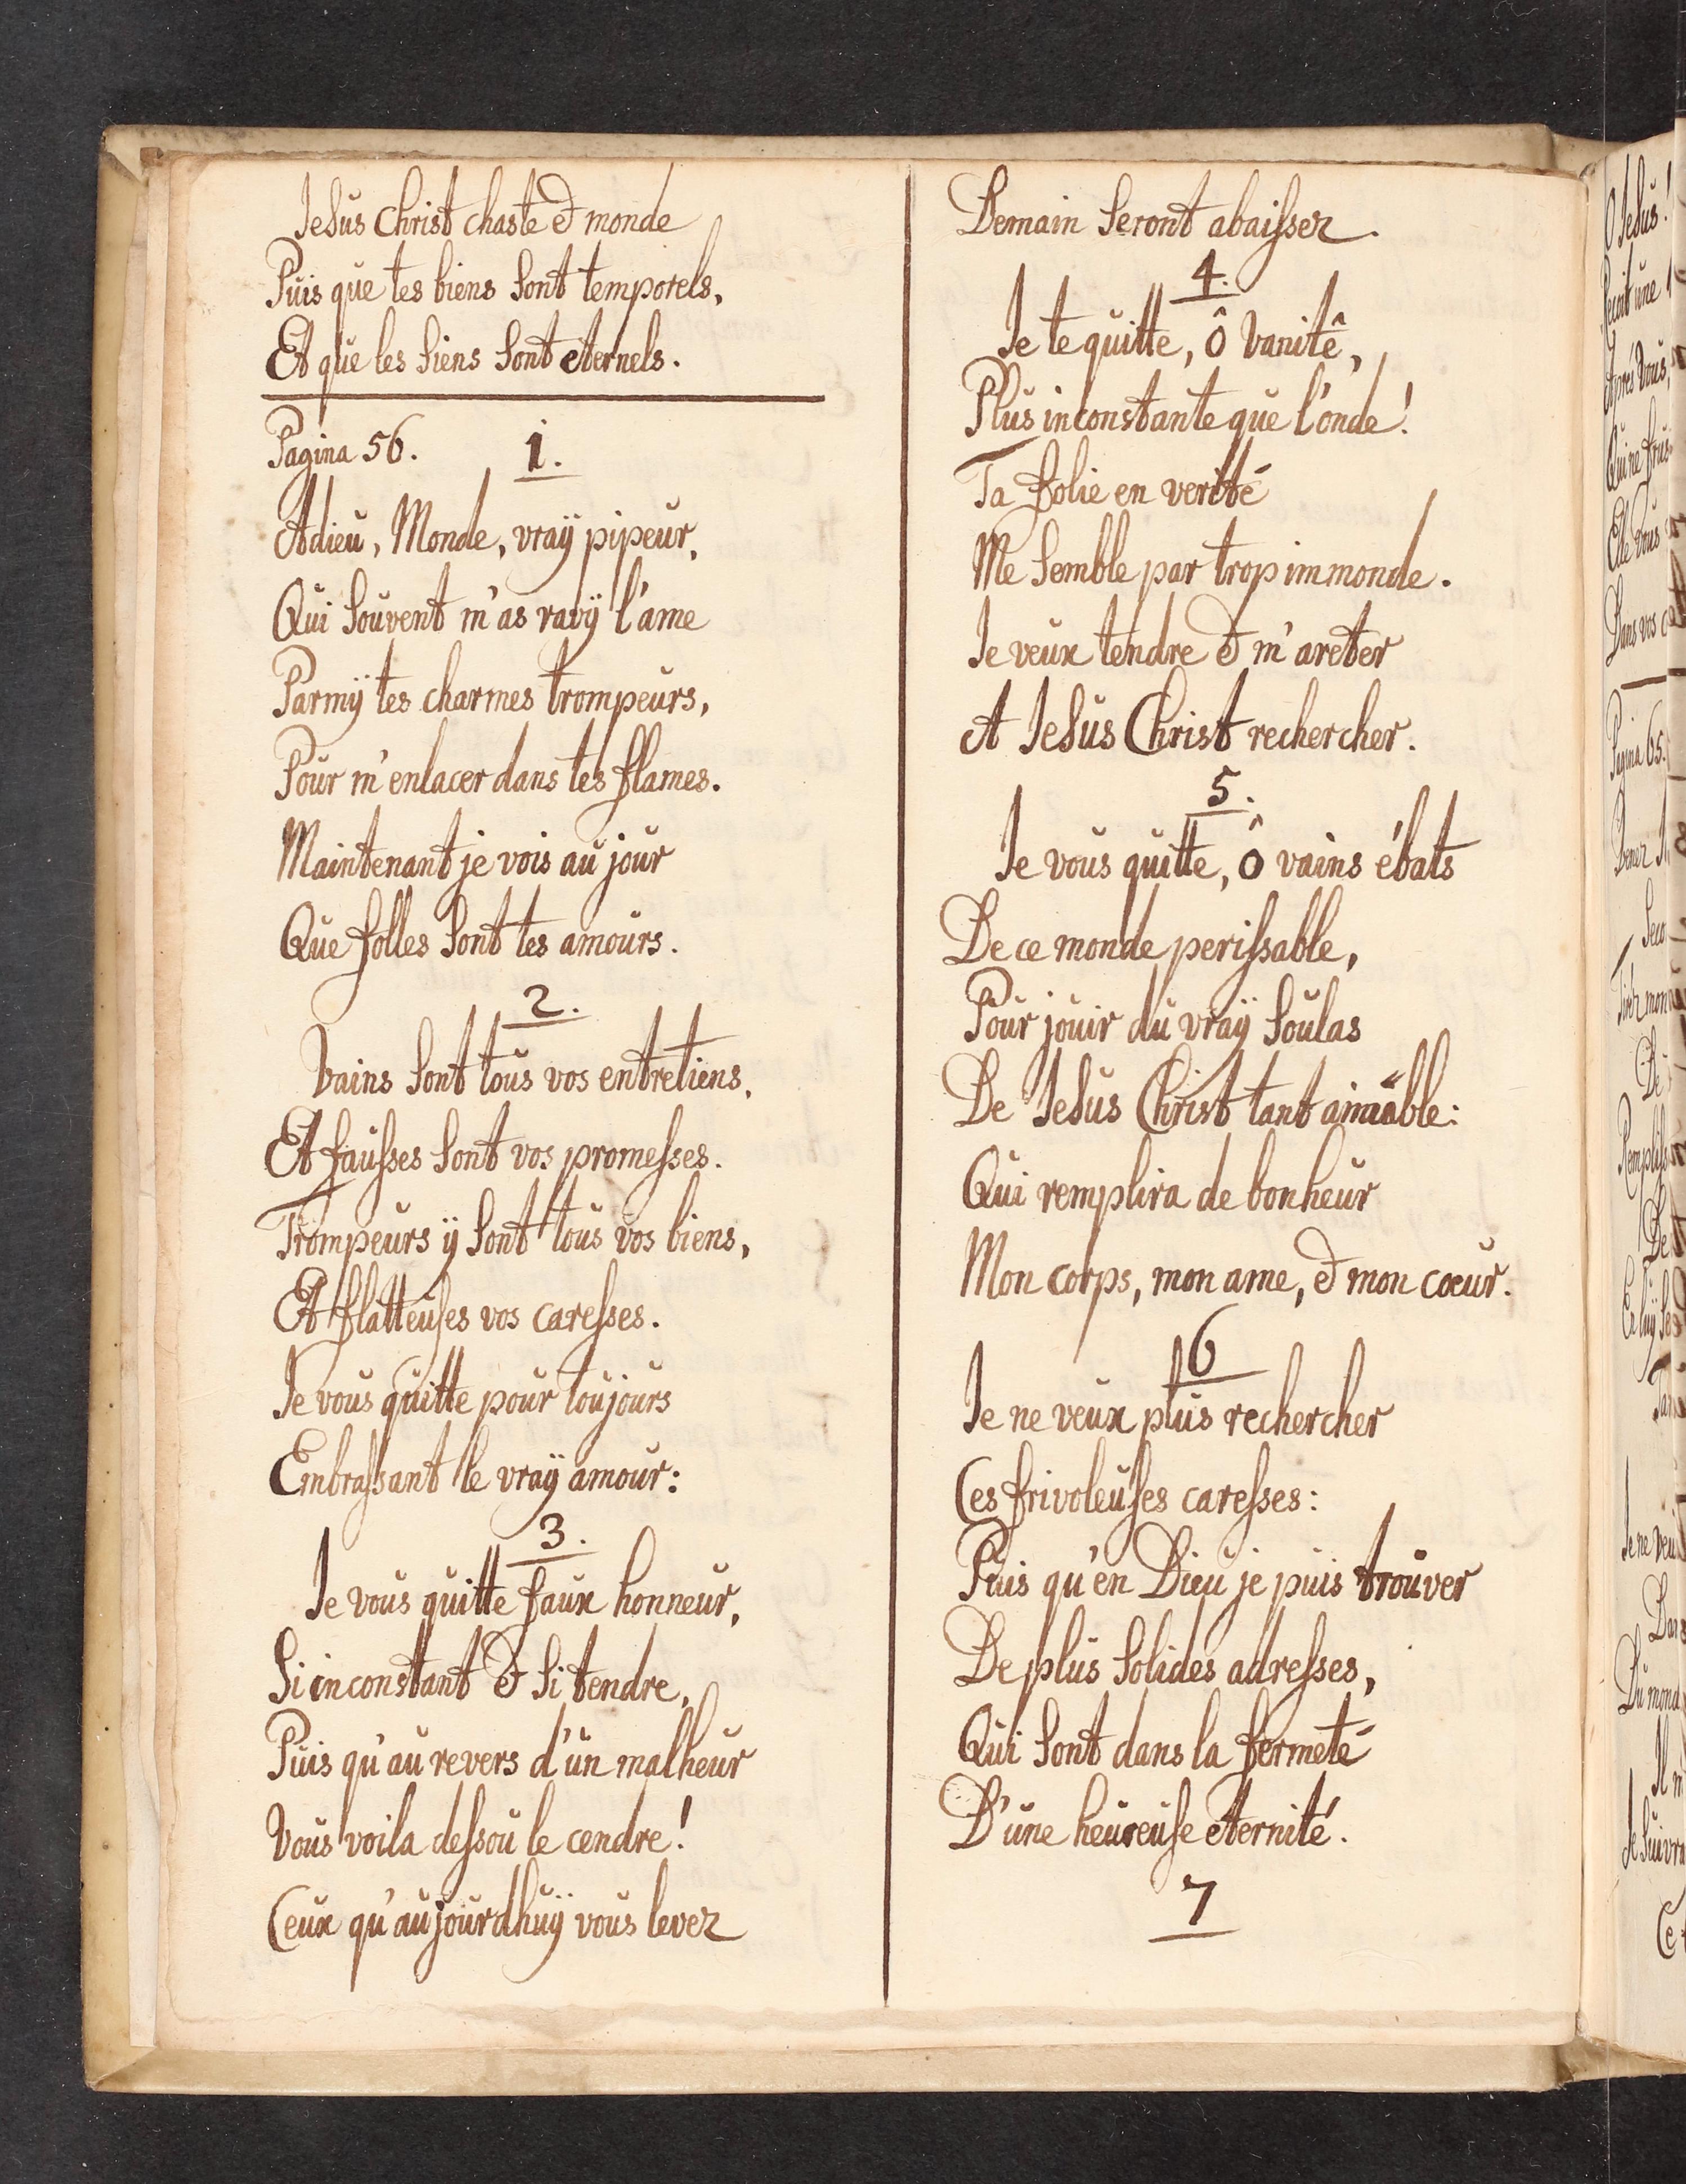 Jesus Christ chaste & monde
Puis que tes biens sont temporels,
Et que les siens sont eternels.
Pagina 56. 1.
Adieu, Monde, vraÿ pipeur,
Qui souvent m'as ravÿ l'ame
Parmÿ tes charmes trompeurs,
Pour m'enlacer dans tes flames.
Maintenant je vois au jour
Que folles sont tes amours.
2.
Vains sont tous vos entretiens,
Et fausses sont vos promesses.
Trompeurs ÿ sont tous vos biens,
Et flatteuses vos caresses.
Je vous quitte pour toujours
Embrassant le vraÿ amour:
3.
Je vous quitte faux honneur,
Si inconstant & si tendre,
Puis qu'au revers d'un malheur
Vous voila dessou le cendre!
Ceux qu'aujourdhuÿ vous levez
Demain seront abaissez.
4.
Je te quitte, ô Vanitê,
Plus inconstante que l'onde!
Ta folie en verité
Me semble par trop immonde.
Je veux tendre & m'areter
A Jesus Christ rechercher.
5.
Je vous quitte, ô vains ébats
De ce monde perissable,
Pour jouir du vraÿ soulas
De Jesus Christ tant aimable:
Qui remplira de bonheur
Mon corps, mon ame, & mon cœur.
6
Je ne veux plus rechercher
Ces frivoleuses caresses:
Puis qu'en Dieu je puis trouver
De plus solides adresses,
Qui sont dans la fermeté
D'une heureuse eternité.
7
O Jesus!
Après Vous,
Qui ne
Elle vous
Dans vos
Pagina 65.
Je ne